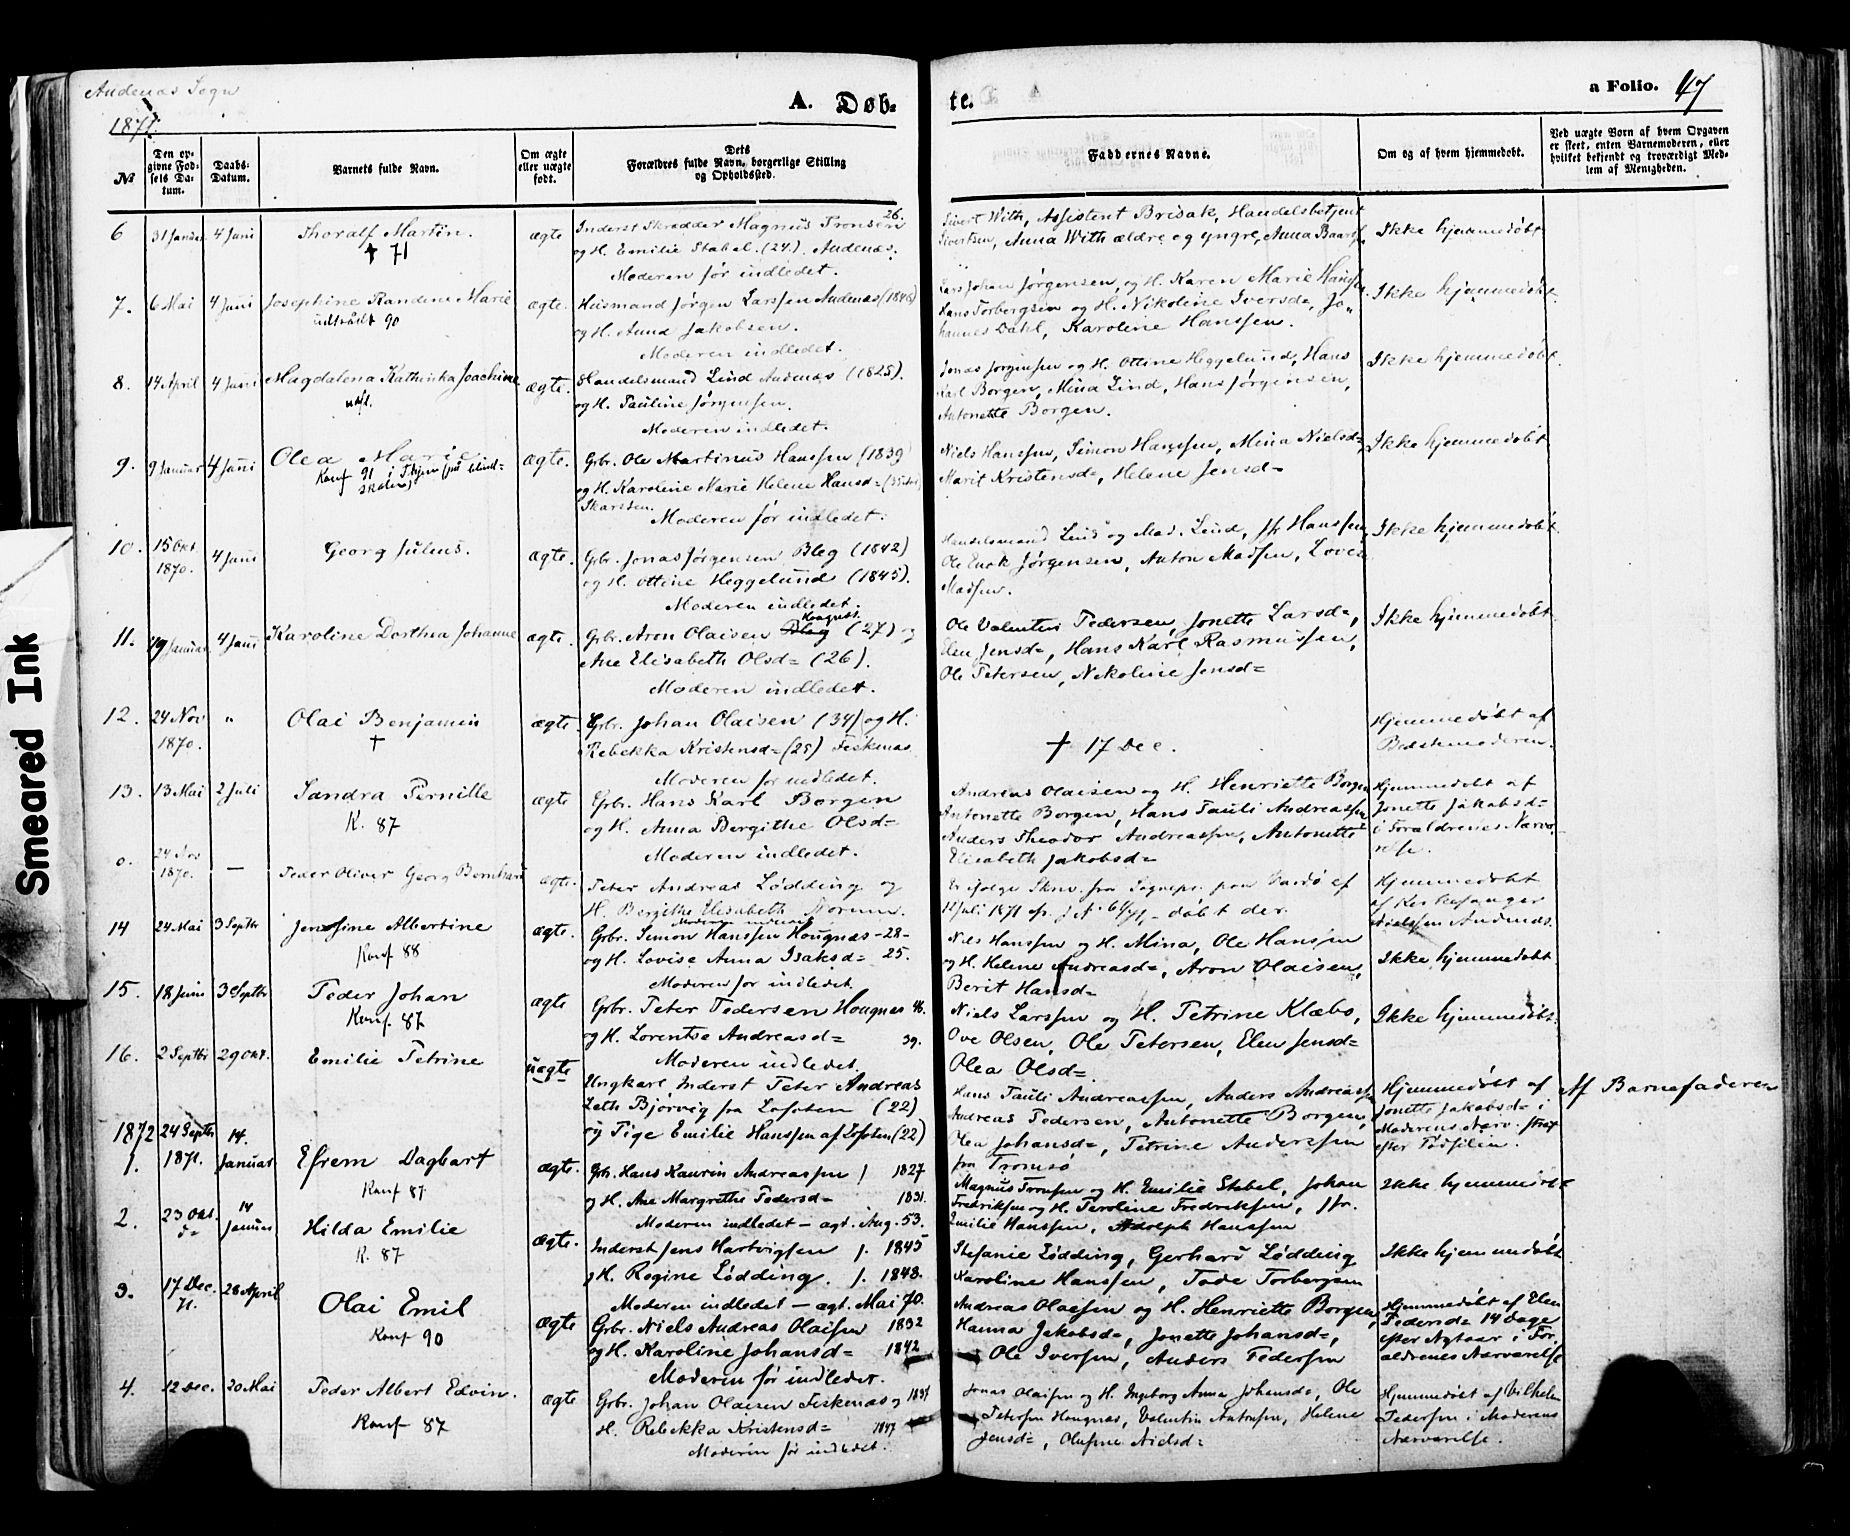 Andenæs Sogn
1871.
A. Døb-
te.
a Folio. 47
№
Den op-
givne Fød-
sels Da-
tum.
Daabs-
Datum.
Barnets fulde Navn.
Om ægte
eller uægte
født.
Dets
Forældres fulde Navn, borgerlige Stilling
og Opholdssted.
Faddernes Navne.
Om og af hvem hjemmedøbt.
Ved uægte Børn af hvem Opgaven
er skeet, enten Barnemoderen, eller
hvilket bekjendt og troværdigt Med-
lem af Menigheden.
6 31 Januar 4 Juni Thoralf Martin. ægte Inderst Skrædder Magnus Tronsen 26.
† 71
og H. Emilie Stabel (24). Andenæs.
Moderen før indledet.
Sivert With, Assistent Brisak, Handelsbetjent
Sivertsen, Anna With ældre og yngre, Anna
Ikke hjemmedøbt
7. 6 Mai 4 Juni Josephine Randine Marie ægte. Husmand Jørgen Larssen Andenæs (1846)
udtrådt 90
og H. Anna Jakobsen.
Moderen indledet.
Lars Johan Jørgensen og H. Karen Marie Hanssen
Hans Torbergsen og H. Nikoline Iversd=, Jo-
hannes Dahl, Karoline Hanssen.
Ikke hjemmedøbt.
8. 14 April 4 Juni Magdalena Kathinka Joachime ægte. Handelsmand Lind Andenæs (1825).
udfl.
og H. Pauline Jørgensen.
Moderen indledet.
Jonas Jørgensen og H. Ottine Heggelund, Hans
Karl Borgen, Mina Lind, Hans Jørgensen,
Antonette Borgen.
Ikke hjemmedøbt
9. 9 Januar 4 Juni Olea Marie ægte. Grbr. Ole Martinus Hanssen (1839)
Konf 91 i Thjem på blind=
skolen
og H. Karoline Marie Helene Hansd=
Skarsten.
Moderen før indledet.
Niels Hanssen, Simon Hanssen, Mina Nielsd=
Marit Kristensd=, Helene Jensd=
Ikke hjemmedøbt
10. 15 Okt. 1870. 4 Juni Georg Julius. ægte. Grbr. Jonas Jørgensen Bleg (1842)
og H. Ottine Heggelund (1845).
Moderen indledet.
Handelsmand Lind og Mad. Lind, Jfr Hanssen
Ole Enok Jørgensen, Anton Madsen, Lovise
Madsen.
Ikke hjemmedøbt
11. 19 Januar 4 Juni Karoline Dorthea Johanne ægte. Grbr. Aron Olaisen Bleg Hougnæs (27) og
Ane Elisabeth Olsd= (26).
Moderen indledet.
Ole Valentin Pedersen, Jonette Larsd=,
Elen Jensd=, Hans Karl Rasmussen,
Ole Petersen, Nikoline Jensd=
Ikke hjemmedøbt
12. 24 Nov 1870. " Olai Benjamin ægte. Grbr. Johan Olaisen (34) og H.
†
Rebekka Kristensd= (25) Fiskenæs
Moderen før indledet.
† 17 Dec.
Hjemmedøbt af
Bedstemoderen.
13. 13 Mai 2 Juli Sandra Pernille ægte Grbr. Hans Karl Borgen
K. 87
og H. Anna Bergithe Olsd=
Moderen indledet.
Andreas Olaisen og H. Henriette Borgen
Antonette Borgen, Hans Pauli Andreassen
Anders Theodor Andreassen, Antonette
Elisabeth Jakobsd=
Hjemmedøbt af
Jonette Jakobsd=
i Forældrenes Nærvæ-
relse.
o. 24 Nov 1870. — Peder Oliver Georg Bernhard ægte. Peter Andreas Lødding og
H. Bergithe Elisabeth Norum.
Moderen indledet
Er ifølge Skriv. fra Sognepr. paa Vardø af
12 Juli 1871 døbt der.
Hjemmedøbt
af Kirkesanger
Nielssen Andenæs.
14 24 Mai 3 Septbr Jensine Albertine ægte. Grbr. Simon Hanssen Hougnæs -28-
Konf 88
og H. Lovise Anna Isaksd= 25.
Moderen før indledet.
Niels Hanssen og H. Mina, Ole Hanssen
og H. Helene Andreasd=, Aron Olaisen,
Berit Hansd=
Ikke hjemmedøbt
15. 18 Juni 3 Septbr Peder Johan ægte Grbr. Peter Pedersen Hougnæs 46.
Konf. 87
og H. Lorentse Andreasd= 39.
Moderen indledet.
Niels Larssen og H. Petrine Klæbo,
Ove Olsen, Ole Petersen, Elen Jensd=
Olea Olsd=.
Ikke hjemmedøbt.
16. 2 Septbr 29 Okt. Emilie Petrine uægte Ungkarl Inderst Peter Andreas
Zeth Bjørvig fra Lofoten (22)
og Pige Emilie Hanssen af Lofoten (22)
Hans Pauli Andreassen, Anders Andreassen
Andreas Pedersen, Antonette Borgen,
Olea Johansd=, Petrine Anderssen
fra Tromsø
Hjemmedøbt af
Jonette Jakobsd= i
Moderens Nærv. strax
efter Fødselen.
Af Barnefaderen
1872
1. 24 Septbr 1871. 14. Januar Efrem Dagbart ægte. Grb. Hans Kaurin Andreassen f 1827
Konf 87
og H. Ane Margrethe Pedersd= 1831.
Moderen indledet - ægt. Aug. 53.
Magnus Tronsen og H. Emilie Stabel, Johan
Fredriksen og H. Peroline Fredriksen, Jfr.
Emilie Hanssen, Adolph Hanssen
Ikke hjemmedøbt
2. 23 Okt. d= 14 Januar Hilda Emilie ægte. Inderst Jens Hartvigsen f. 1845
K. 87
og H. Regine Lødding. f. 1848.
Moderen indledet - ægt. Mai 70.
Stefanie Lødding, Gerhard Lødding
Karoline Hanssen, Tode Torbergsen
Ikke hjemmedøbt
3. 17 Dec. 71. 28 April Olai Emil ægte Grbr. Niels Andreas Olaisen 1832
Konf 90
og H. Karoline Johansd= 1842
Moderen før indledet.
Andreas Olaissen og H. Henriette Borgen,
Hanna Jakobsd=, Jonette Johansd=,
Ole Iversen, Anders Pedersen
Hjemmedøbt af Elen
Pedersd= 14 Dage
efter Nytaar i For-
ældrenes Nærværelse
4. 12 Dec. 20 Mai Peder Albert Edvin. ægte Grbr. Johan Olaisen Fiskenæs og 1837
Konf 87
H. Rebekka Kristensd= 1847
Moderen før indledet.
Jonas Olaissen og H. Ingeborg Anna Johansd=, Ole
Petersen Hougnæs, Valentin, Helene
Jensd=, Olufine Nielsd=
Hjemmedøbt af Vilhelm
Pedersen i Moderens
Nærværelse.
Smeared Ink